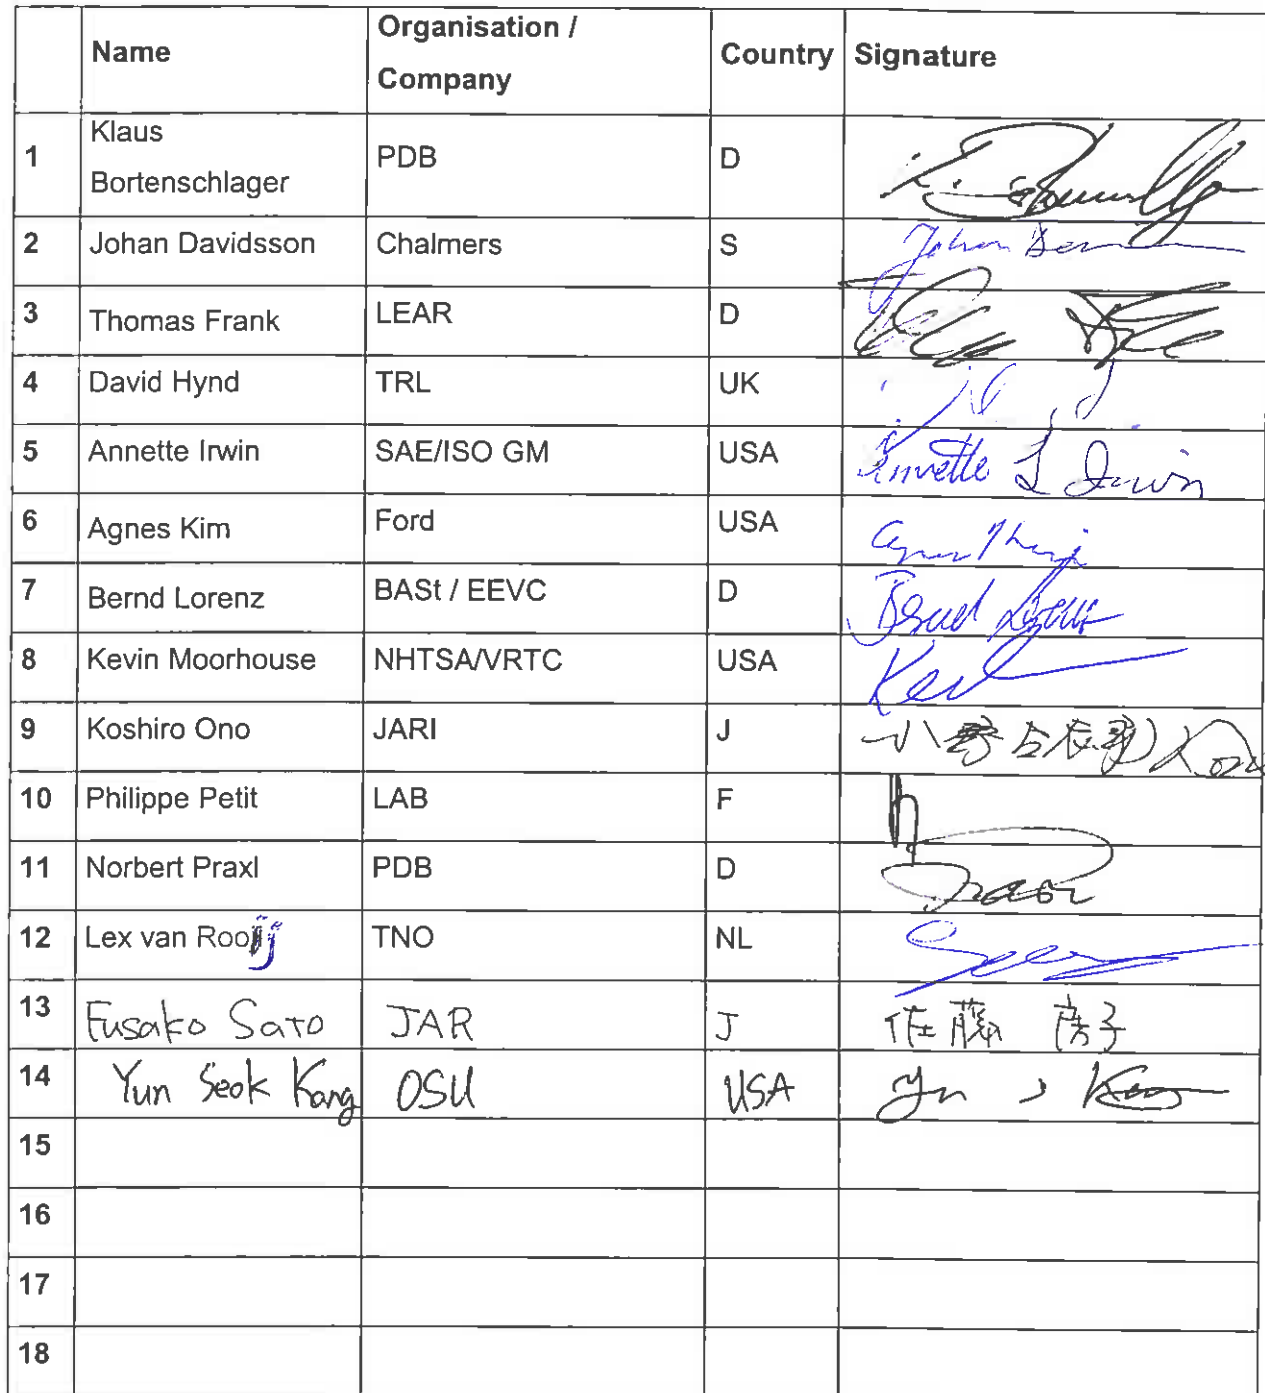 Name Organisation / Company Country Signature
1 Klaus Bortenschlager PDB D
2 Johan Davidsson Chalmers S Johan
3 Thomas Frank LEAR D
4 David Hynd TRL UK
5 Annette Irwin SAE/ISO GM USA Annette L Irwin
6 Agnes Kim Ford USA
7 Bernd Lorenz BASt / EEVC D Bernd Lorenz
8 Kevin Moorhouse NHTSA/VRTC USA
9 Koshiro Ono JARI J
10 Philippe Petit LAB F
11 Norbert Praxl PDB D
12 Lex van Rooij TNO NL
13 Fusako Sato JAR J 佐藤 房子
14 Yun Seok Kang OSU USA
15
16
17
18